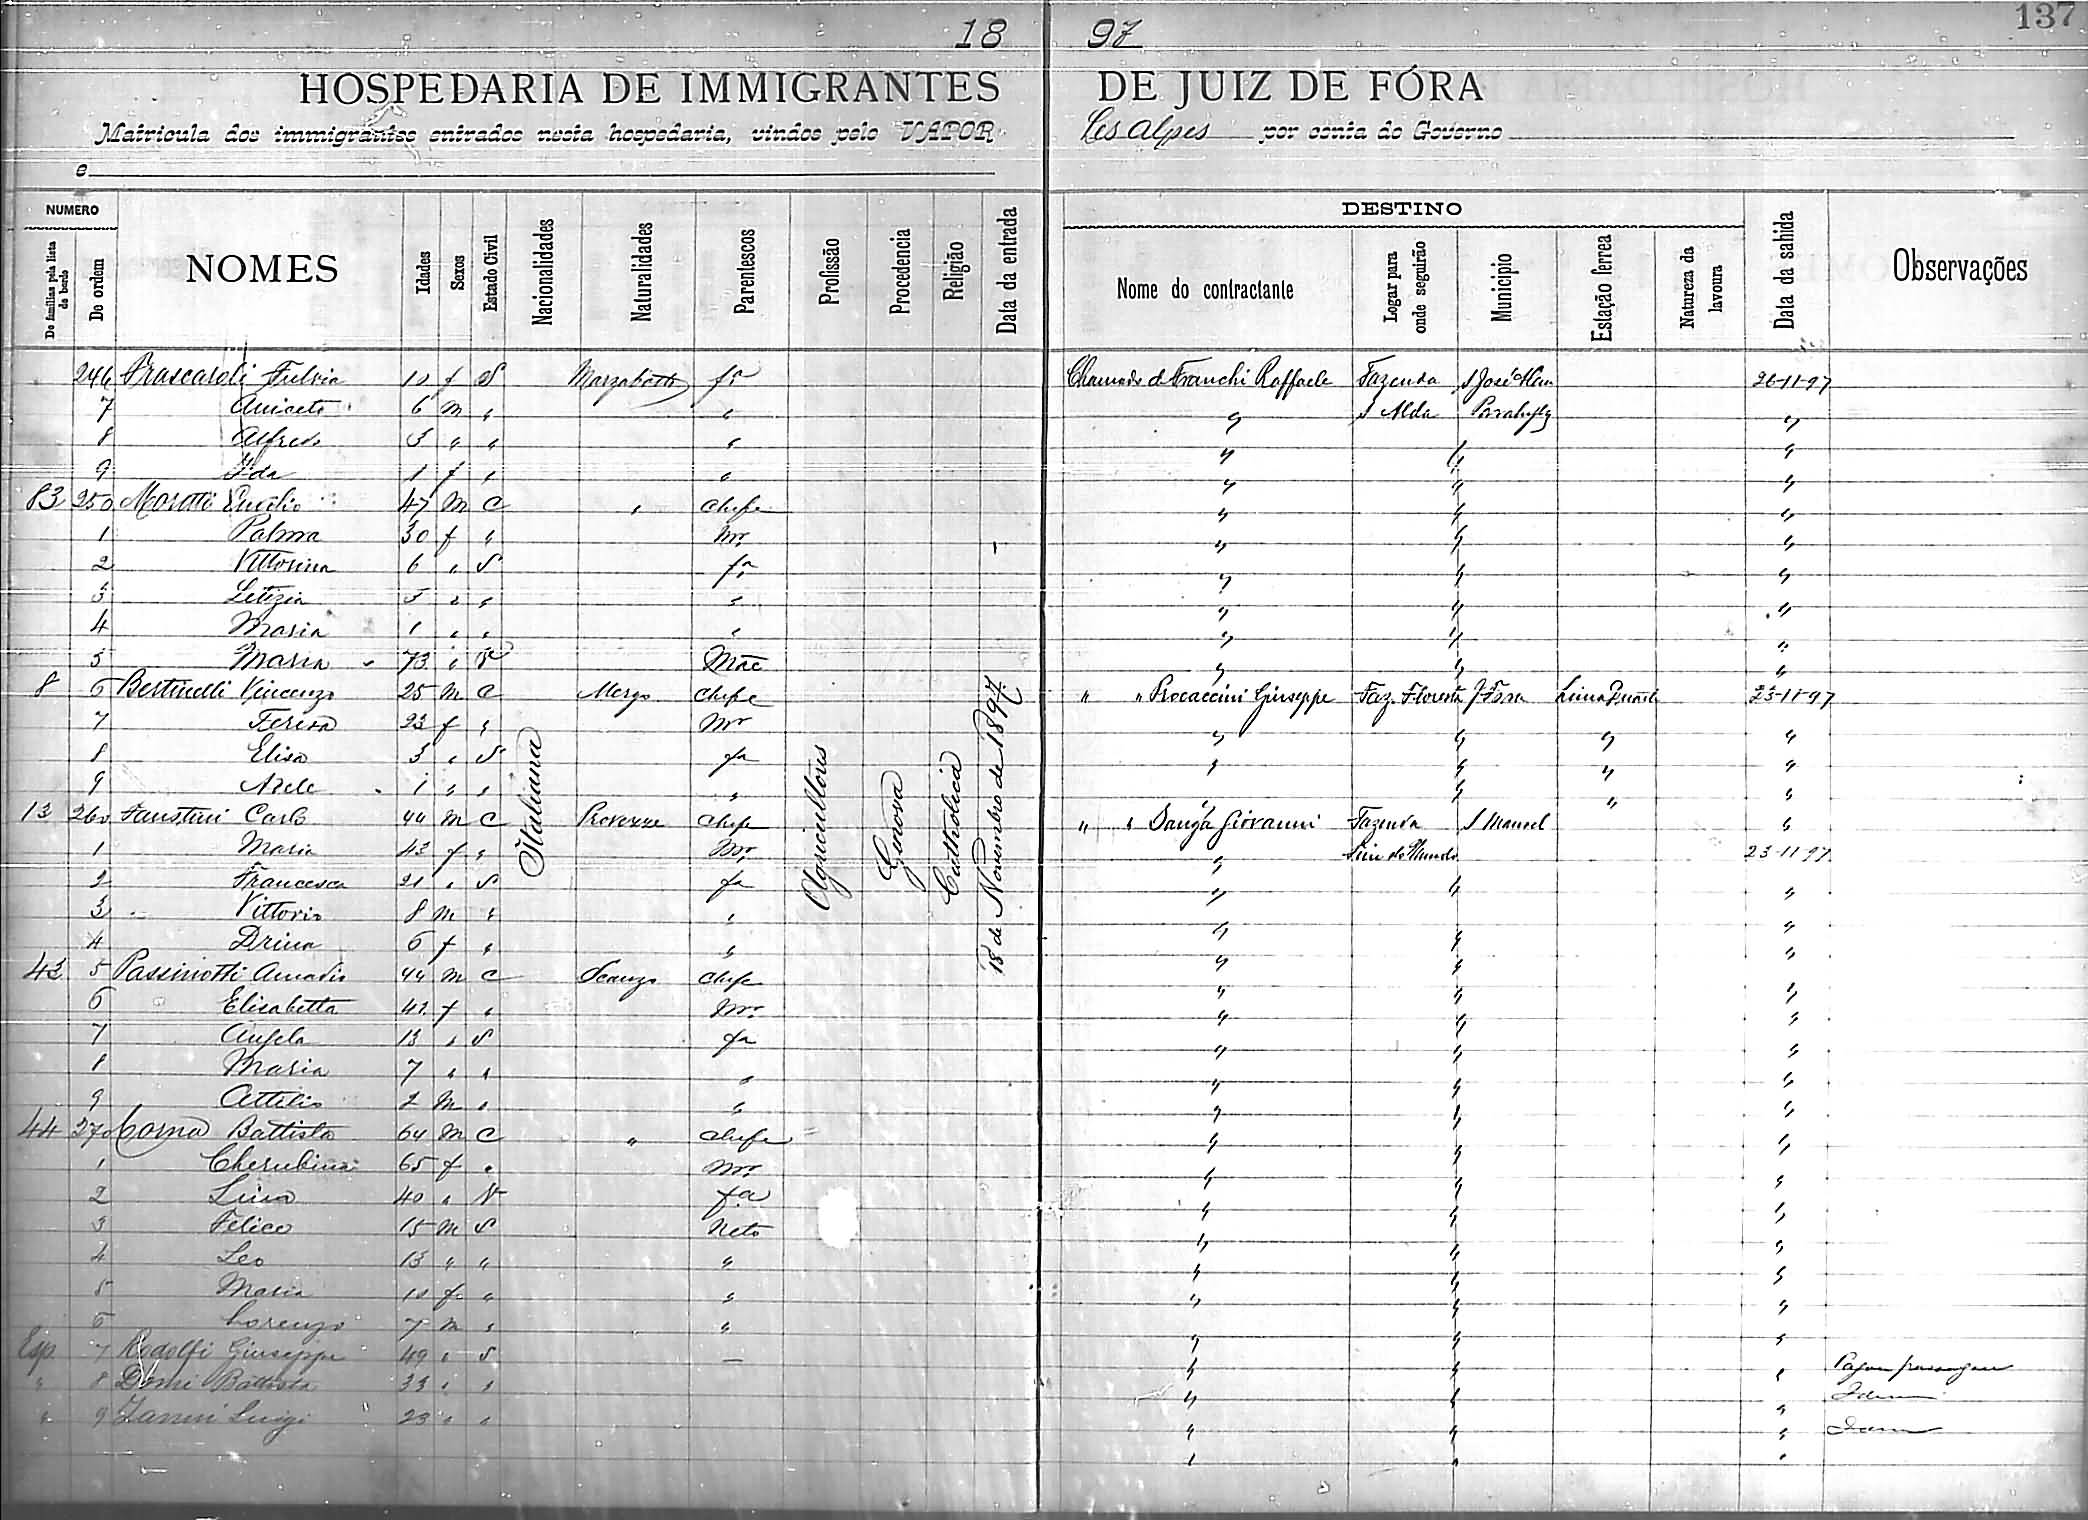 137
18 97
HOSPEDARIA DE IMMIGRANTES DE JUIZ DE FÓRA
Matricula dos immigrantes entrados nesta hospedaria, vindos pelo VAPOR Les Alpes por conta do Governo
e
NUMERO
De familias pela lista de bordo
De ordem
NOMES
Idades
Sexos
Estado Civil
Nacionalidades
Naturalidades
Parentescos
Profissão
Procedencia
Religião
Data da entrada
DESTINO
Nome do contractante
Logar para onde seguirão
Municipio
Estação ferrea
Natureza da lavoura
Data da sahida
Observações
246 Frascaroli Fulvia 10 f S Marzabotto fa Chamado de Franchi Raffaele Fazenda S José Alem 26-11-97
7 Aniceto 6 m " " " S Alda Parahyba "
8 Alfredo 3 " " " " " "
9 Ida 1 f " " " " "
83 250 Moretti 47 m C " Chefe " " "
1 Palma 30 f " Mr " " "
2 Vittorina 6 " S fa " " "
3 Letizia 5 " " " " " "
4 Maria 1 " " " " " "
5 Maria 73 " V Mãe " " "
8 6 Bertinelli Vincenzo 25 m C Mergo Chefe " " Procaccini Giuseppe Faz. Floresta J Fora Lima Duarte 23-11-97
7 Teresa 23 f " Mr " " " "
8 Elisa 3 " S fa " " " "
9 Adele 1 " " " " " " "
13 260 Faustini Carlo 44 m C Prevezze Chefe " " Fazenda S Manoel "
1 Maria 43 f " Mr " Fim do Mundo 23-11-97
2 Francesca 21 " S fa " " "
3 Vittorio 8 m " " " "
4 Drina 6 f " " " " "
43 5 Passinotti Amadio 44 m C Scanzo Chefe " " "
6 Elisabetta 42 f " Mr " " "
7 Angela 13 " S fa " " "
8 Maria 7 " " " " " "
9 Attilio 2 m " " " " "
44 270 Corna Battista 64 m C " Chefe " " "
1 Cherubina 65 f " Mr " " "
2 40 " V fa " " "
3 Felice 15 m S Neto " " "
4 Leo 13 " " " " " "
5 Maria 10 f " " " " "
6 Lorenzo 7 m " " " " "
Esp 7 Rodolfi Giuseppe 49 " S — " " " Pagou passagem
" 8 Battista 33 " " " " " Idem
" 9 Zanni Luigi 23 " " " " " Idem
Italiana
Agricultores
Genova
Catholica
18 de Novembro de 1897